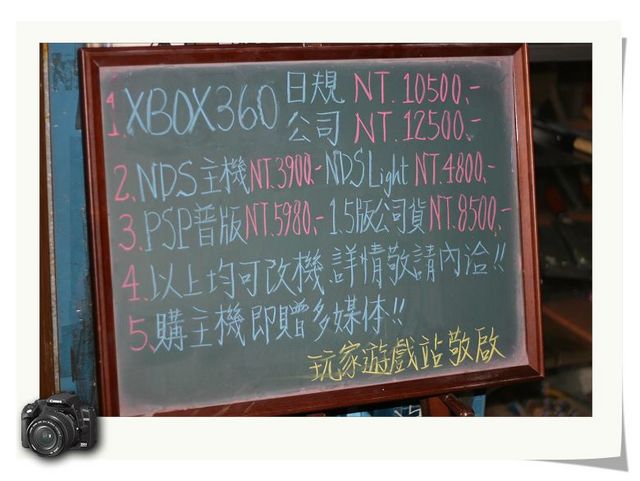 1. XBOX360 日規 NT. 10500.-
公司 NT. 12500.-
2. NDS主機NT.3900.- NDS Light NT.4800.-
3. PSP普版NT.5980.- 1.5版公司貨NT.8500.-
4. 以上均可改機.詳情敬請內洽!!
5. 購主機即贈多媒体!!
玩家遊戲站敬啟
Canon